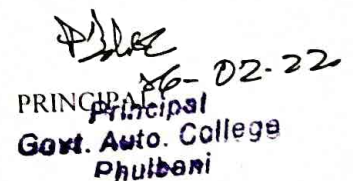 26-02-22
PRINCIPAL
Principal
Govt. Auto. College
Phulbani